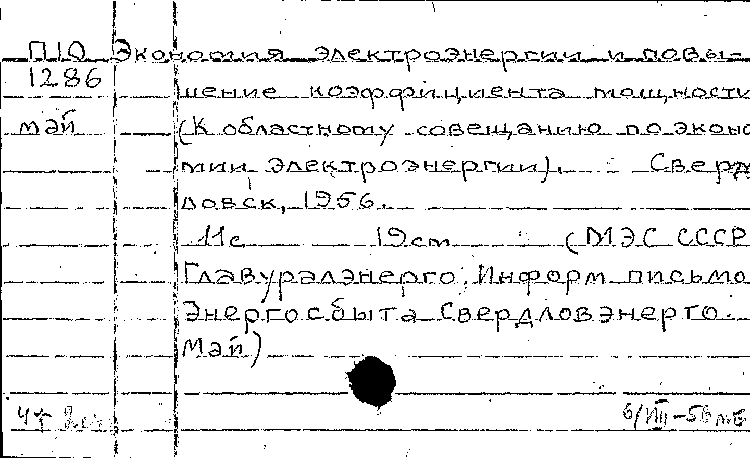 П10 Экономия электроэнергии и повы-
1286
шение коэффициента мощности
май (К областному совещанию по эконо
мии электроэнергии). Сверд
ловск, 1956.
11с 19см (МЭС СССР
Главуралэнерго. Информ письмо
Энергосбыта Свердловэнерго.
Май)
6/VIII-56